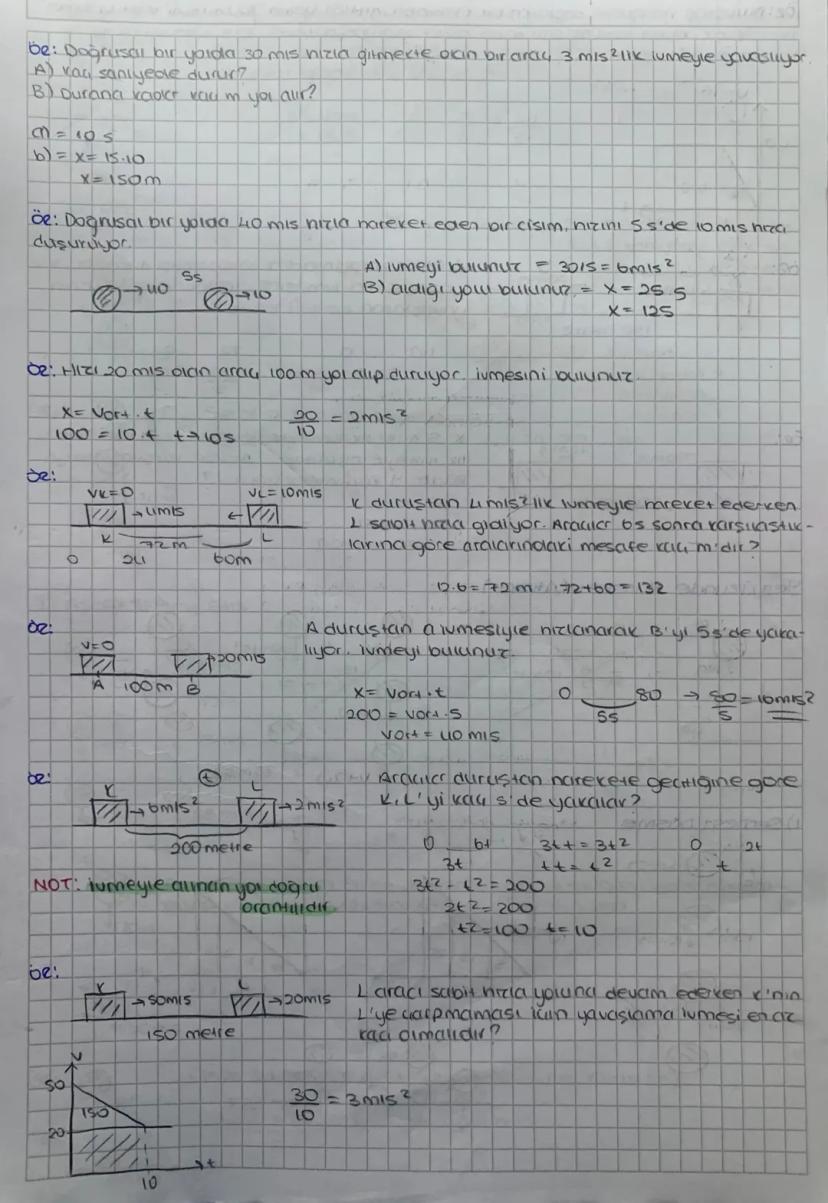 Öz: Doğrusal bir yolda 30 m/s hızla gitmekte olan bir araç 3 m/s² lik ivmeyle yavaşlıyor.
A) Kaç saniyede durur?
B) Durana kadar kaç m yol alır?
a) = 10 s
b) = x = 15.10
x = 150m
Öz: Doğrusal bir yolda 40 m/s hızla hareket eden bir cisim, hızını 5 s'de 10 m/s hıza
düşürüyor.
→40 5s →10
A) ivmeyi bulunuz = 30/5 = 6m/s²
B) aldığı yolu bulunuz = x = 25.5
x = 125
Öz: Hızı 20 m/s olan araç 100 m yol alıp duruyor. ivmesini bulunuz.
x = Vort.t
100 = 10.t t→10s
20/10 = 2m/s²
Öz:
VK=0 VL=10m/s
→4m/s ←
K 72m L
0 24 60m
K duruştan 4 m/s² lik ivmeyle hareket ederken
L sabit hızla gidiyor. Araçlar 6s sonra karşılaştık-
larına göre aralarındaki mesafe kaç m'dir?
12.6=72m 72+60=132
Öz:
V=0
→20m/s
A 100m B
A duruştan a ivmesiyle hızlanarak B'yi 5s'de yaka-
lıyor. ivmeyi bulunuz.
x = Vort.t
200 = Vort.5
Vort = 40 m/s
0 80 → 80/5 = 16m/s²
5s
Öz:
K + L
→6m/s² →2m/s²
200 metre
Araçlar duruştan harekete geçtiğine göre
K, L'yi kaç s'de yakalar?
0 6t 3t.t = 3t² 0 2t
3t t.t = t² t
3t² - t² = 200
2t² = 200
t² = 100 t = 10
NOT: ivmeyle alınan yol doğru
orantılıdır.
Öz:
K L
→50m/s →20m/s
150 metre
L aracı sabit hızla yoluna devam ederken K'nın
L'ye çarpmaması için yavaşlama ivmesi en az
kaç olmalıdır?
V
50
150
20
t
10
30/10 = 3m/s²